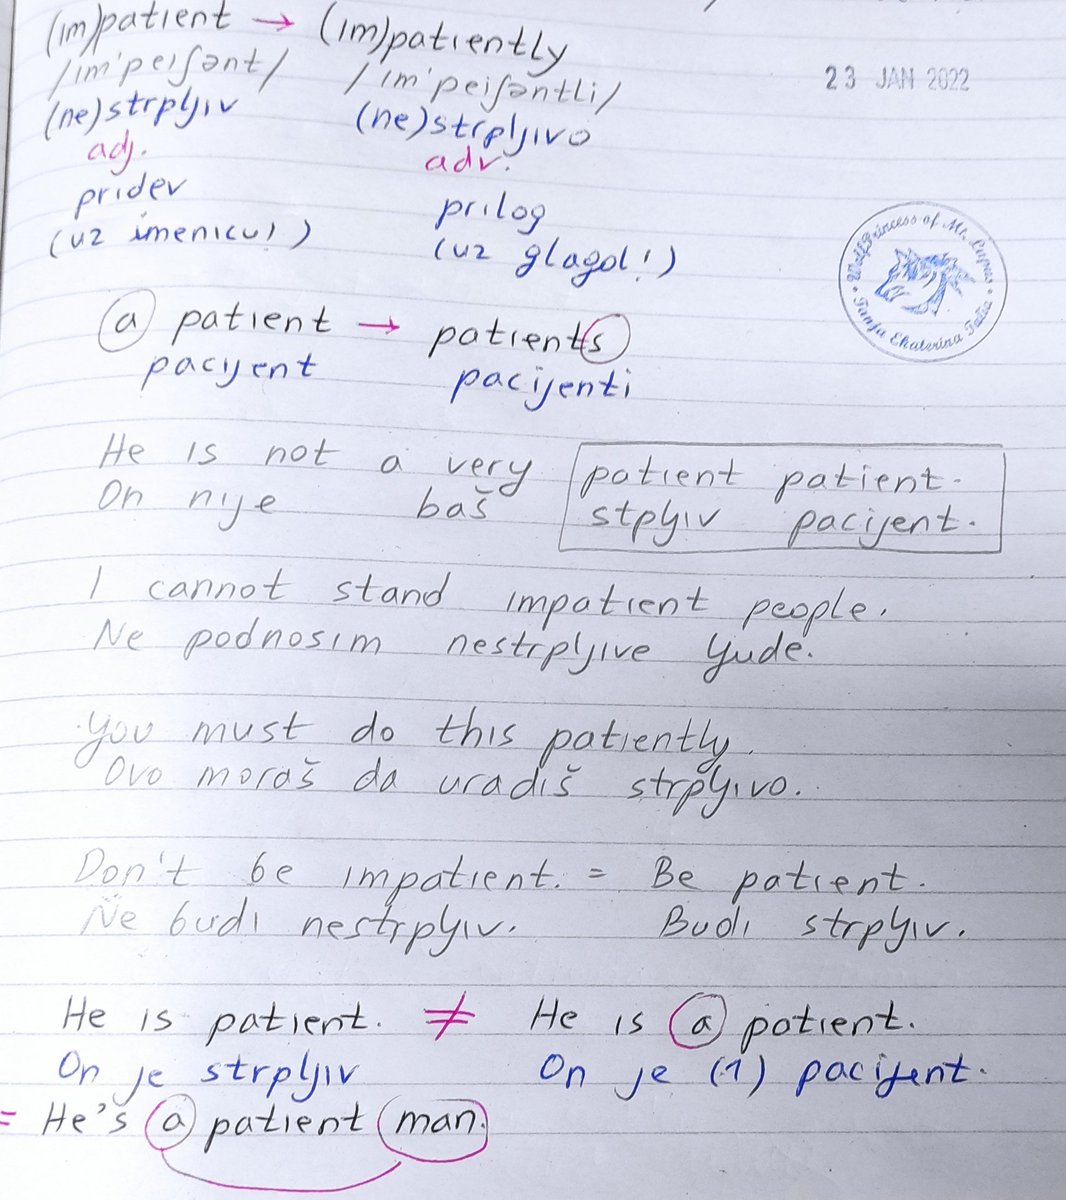 (im)patient → (im)patiently
/im'peiʃənt/ /im'peiʃəntli/
(ne)strpljiv (ne)strpljivo
adj. adv.
pridev prilog
(uz imenicu!) (uz glagol!)
23 JAN 2022
WolfPrincess of Mt. Lupus
Tanja Ekaterina
a patient → patients
pacijent pacijenti
He is not a very patient patient.
On nije baš stpljiv pacijent.
I cannot stand impatient people.
Ne podnosim nestrpljive ljude.
You must do this patiently.
Ovo moraš da uradiš strpljivo.
Don't be impatient. = Be patient.
Ne budi nestrpljiv. Budi strpljiv.
He is patient. ≠ He is a patient.
On je strpljiv On je (1) pacijent.
= He's a patient man.